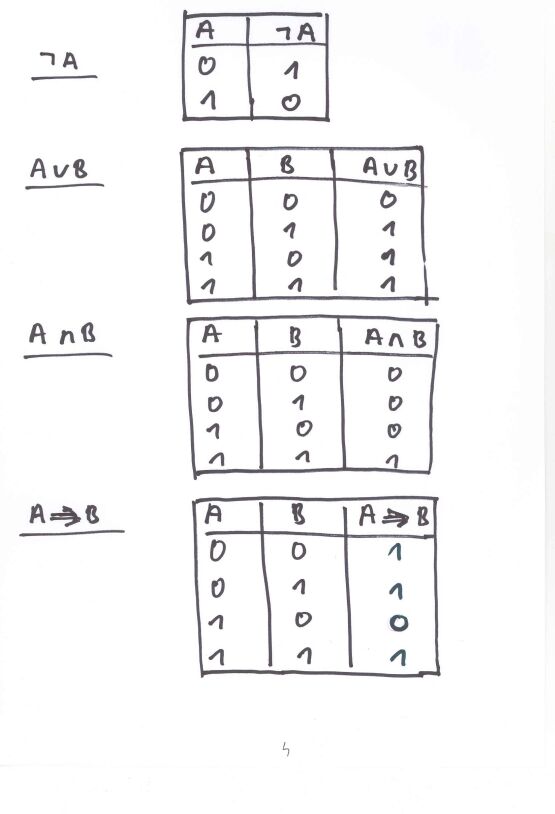 A ¬A
¬A
0 1
1 0
A∪B
A B A∪B
0 0 0
0 1 1
1 0 1
1 1 1
A∩B
A B A∩B
0 0 0
0 1 0
1 0 0
1 1 1
A⇒B
A B A⇒B
0 0 1
0 1 1
1 0 0
1 1 1